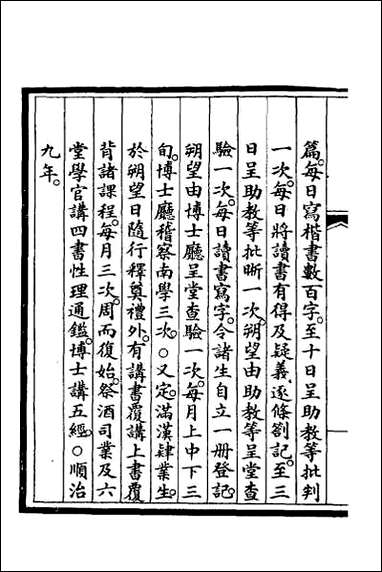 篇。每日寫楷書數百字。至十日呈助教等批判
一次。每日將讀書有得及疑義。逐條劄記。至三
日呈助教等批晰一次。朔望由助教等呈堂查
驗一次。每日讀書寫字。令諸生自立一冊登記。
朔望由博士廳呈堂查驗一次。每月上中下三
旬。博士廳稽察南學三次。○又定。滿漢肄業生。
於朔望日隨行釋奠禮外。有講書覆講上書覆
背諸課程。每月三次。周而復始。祭酒司業及六
堂學官講四書性理通鑑。博士講五經。○順治
九年。